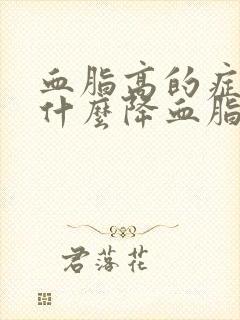 血脂高的症
什麼降血脂
君落花